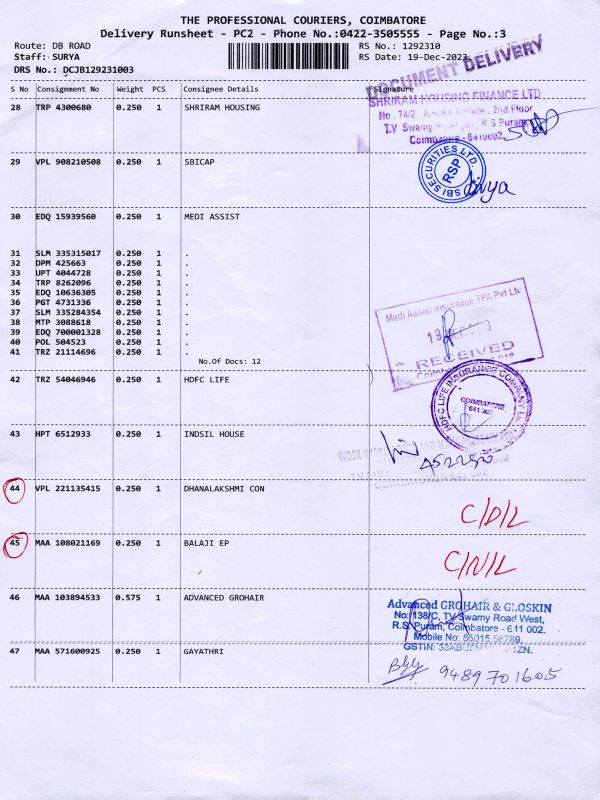 THE PROFESSIONAL COURIERS, COIMBATORE
Delivery Runsheet - PC2 - Phone No.:0422-3505555 - Page No.:3
Route: DB ROAD
RS No.: 1292310
Staff: SURYA
RS Date: 19-Dec-2023
DRS No.: DCJB129231003
DOCUMENT DELIVERY
S No Consignment No Weight PCS Consignee Details Signature
28 TRP 4300680 0.250 1 SHRIRAM HOUSING
SHRIRAM HOUSING FINANCE LTD
No. 74/2, 2nd Floor
T.V Swamy R S Puram,
Coimbatore - 641002.
29 VPL 908210508 0.250 1 SBICAP
SBI SECURITIES LTD.
RSP
30 EDQ 15939560 0.250 1 MEDI ASSIST
31 SLM 335315017 0.250 1 .
32 DPM 425663 0.250 1 .
33 UPT 4044728 0.250 1 .
34 TRP 8262096 0.250 1 .
35 EDQ 10636305 0.250 1 .
36 PGT 4731336 0.250 1 .
37 SLM 335284354 0.250 1 .
38 MTP 3088618 0.250 1 .
39 EDQ 700001328 0.250 1 .
40 POL 504523 0.250 1 .
41 TRZ 21114696 0.250 1 .
No.Of Docs: 12
Medi Assist Insurance TPA Pvt Ltd
RECEIVED
42 TRZ 54046946 0.250 1 HDFC LIFE
HDFC LIFE INSURANCE COMPANY LTD
COIMBATORE
641 002
43 HPT 6512933 0.250 1 INDSIL HOUSE
INDSIL
44 VPL 221135415 0.250 1 DHANALAKSHMI CON
C/D/L
45 MAA 108021169 0.250 1 BALAJI EP
C/N/L
46 MAA 103894533 0.575 1 ADVANCED GROHAIR
Advanced GROHAIR & GLOSKIN
No: 138/C, TV Swamy Road West,
R.S. Puram, Coimbatore - 641 002.
Mobile No: 86015 56789
GSTIN:
47 MAA 571600925 0.250 1 GAYATHRI
9489701605